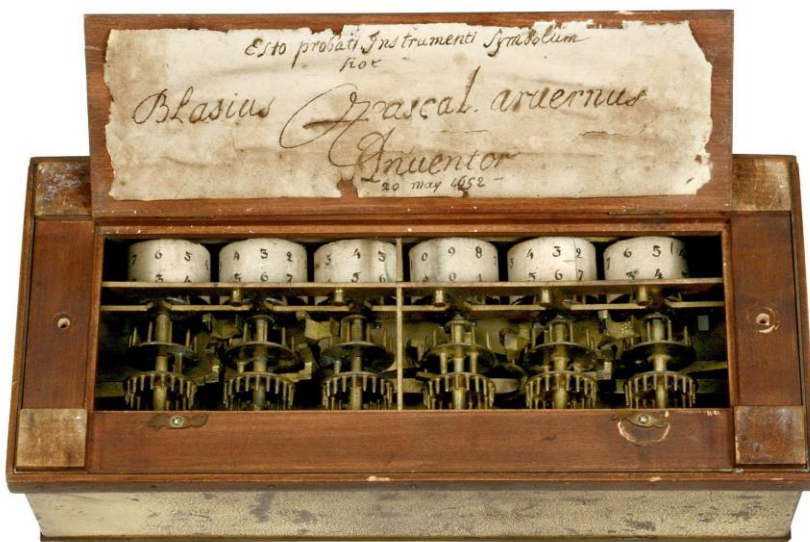 Esto probati Instrumenti Symbolum
hoc
Blasius Pascal. arvernus
Inventor
20 may 1652
7 6 5
4 3 2
3 4 3
0 9 8
4 3 2
7 6 5